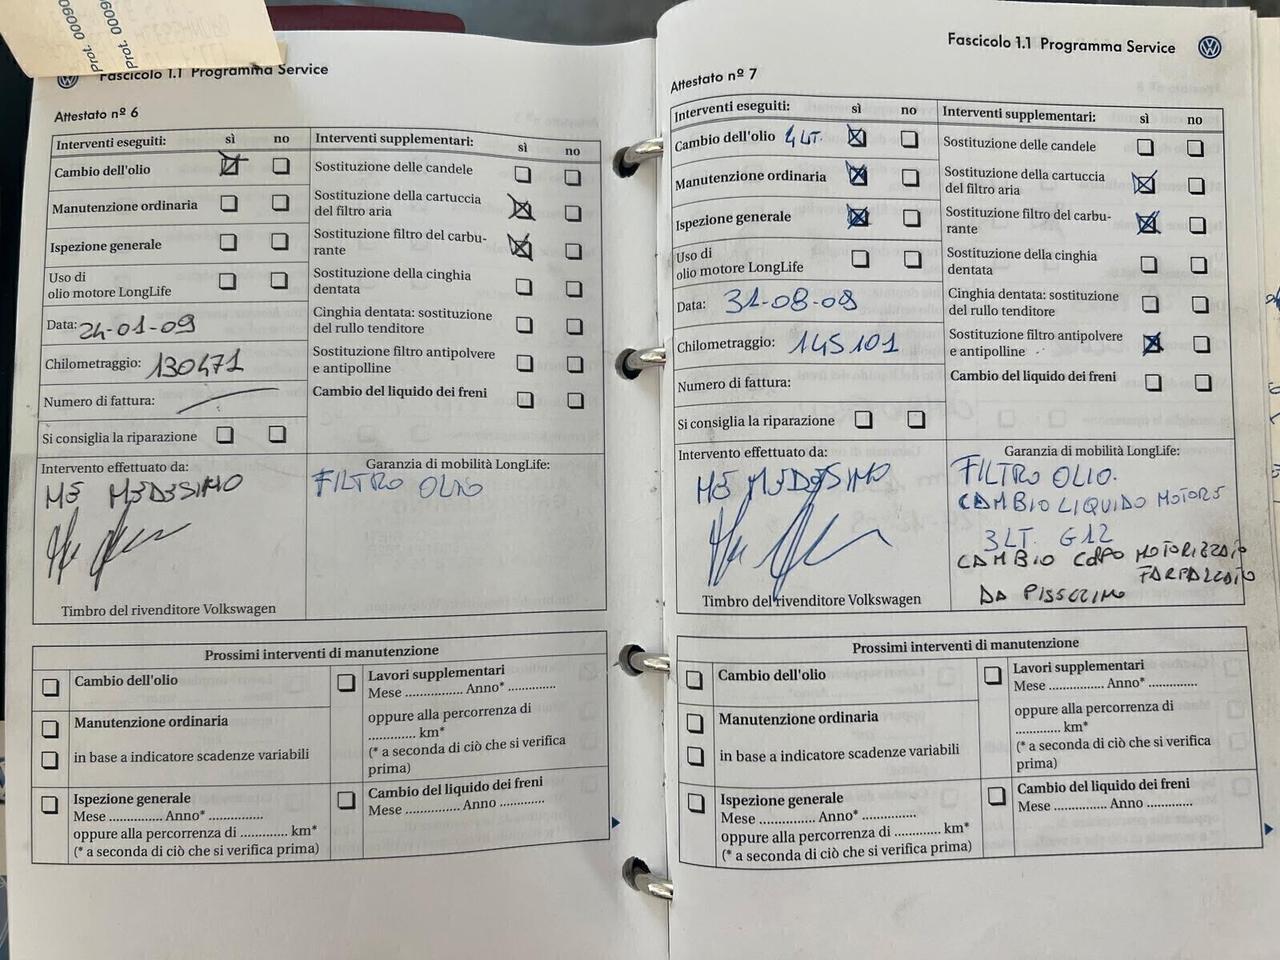 Prot. 00090
Prot. 0009
Fascicolo 1.1 Programma Service
Attestato nº 6
Interventi eseguiti: sì no
Cambio dell'olio
Manutenzione ordinaria
Ispezione generale
Uso di
olio motore LongLife
Data: 24-01-09
Chilometraggio: 130471
Numero di fattura:
Si consiglia la riparazione
Intervento effettuato da:
MÈ MEDESIMO
Timbro del rivenditore Volkswagen
Interventi supplementari: sì no
Sostituzione delle candele
Sostituzione della cartuccia
del filtro aria
Sostituzione filtro del carbu-
rante
Sostituzione della cinghia
dentata
Cinghia dentata: sostituzione
del rullo tenditore
Sostituzione filtro antipolvere
e antipolline
Cambio del liquido dei freni
Garanzia di mobilità LongLife:
FILTRO OLIO
Prossimi interventi di manutenzione
Cambio dell'olio
Manutenzione ordinaria
in base a indicatore scadenze variabili
Ispezione generale
Mese ................ Anno* ................
oppure alla percorrenza di ............ km*
(* a seconda di ciò che si verifica prima)
Lavori supplementari
Mese ............... Anno* ............
oppure alla percorrenza di
............ km*
(* a seconda di ciò che si verifica
prima)
Cambio del liquido dei freni
Mese .............. Anno ............
Fascicolo 1.1 Programma Service
Attestato nº 7
Interventi eseguiti: sì no
Cambio dell'olio 4 LT.
Manutenzione ordinaria
Ispezione generale
Uso di
olio motore LongLife
Data: 31-08-09
Chilometraggio: 145101
Numero di fattura:
Si consiglia la riparazione
Intervento effettuato da:
MÈ MEDESIMO
Timbro del rivenditore Volkswagen
Interventi supplementari: sì no
Sostituzione delle candele
Sostituzione della cartuccia
del filtro aria
Sostituzione filtro del carbu-
rante
Sostituzione della cinghia
dentata
Cinghia dentata: sostituzione
del rullo tenditore
Sostituzione filtro antipolvere
e antipolline
Cambio del liquido dei freni
Garanzia di mobilità LongLife:
FILTRO OLIO.
CAMBIO LIQUIDO MOTORE
3LT. G12
CAMBIO CORPO MOTORIZZATO
FARFALLATO
DA
Prossimi interventi di manutenzione
Cambio dell'olio
Manutenzione ordinaria
in base a indicatore scadenze variabili
Ispezione generale
Mese ................ Anno* ................
oppure alla percorrenza di ............ km*
(* a seconda di ciò che si verifica prima)
Lavori supplementari
Mese .............. Anno* .............
oppure alla percorrenza di
............ km*
(* a seconda di ciò che si verifica
prima)
Cambio del liquido dei freni
Mese .............. Anno ............